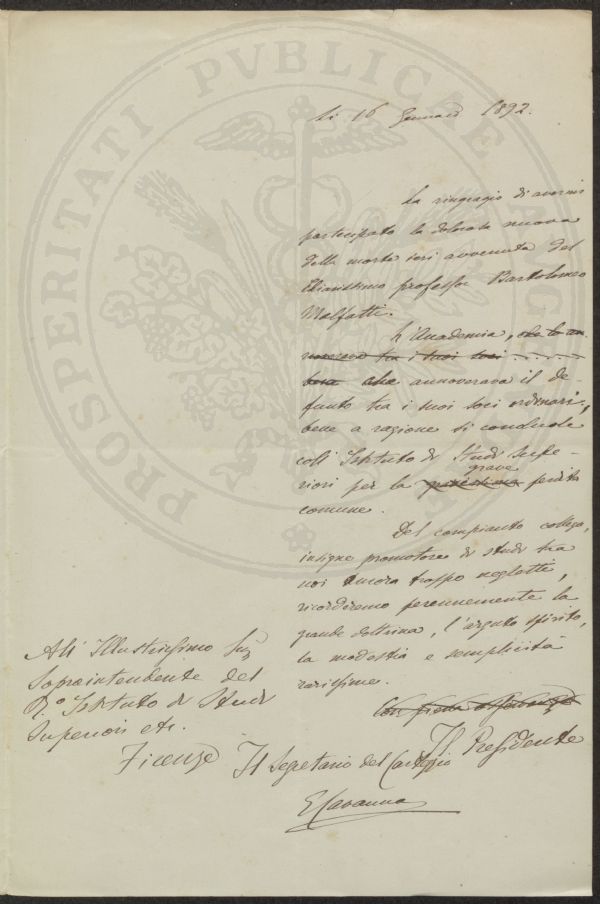 PROSPERITATI PVBLICAE AVG
lì 16 Gennaio 1892.
La ringrazio di avermi
partecipato la dolorosa nuova
della morte ieri avvenuta del
Chiarissimo professor Bartolomeo
Malfatti.
L'Accademia, che lo an-
noverava tra i suoi soci
bene che annoverava il de-
funto tra i suoi soci ordinari,
bene a ragione si conduole
coll'Istituto di Studi Supe-
riori per la gravissima grave perdita
comune.
Del compianto collega,
insigne promotore di studi tra
noi ancora troppo negletti,
ricorderemo perennemente la
grande dottrina, l'arguto spirito,
la modestia e semplicità
rarissime.
Con piena osservanza
Il Presidente
All'Illustrissimo Sig.
Sopraintendente del
R.o Istituto di Studi
Superiori etc.
Firenze
Il Segretario del Carteggio
E Cavanna